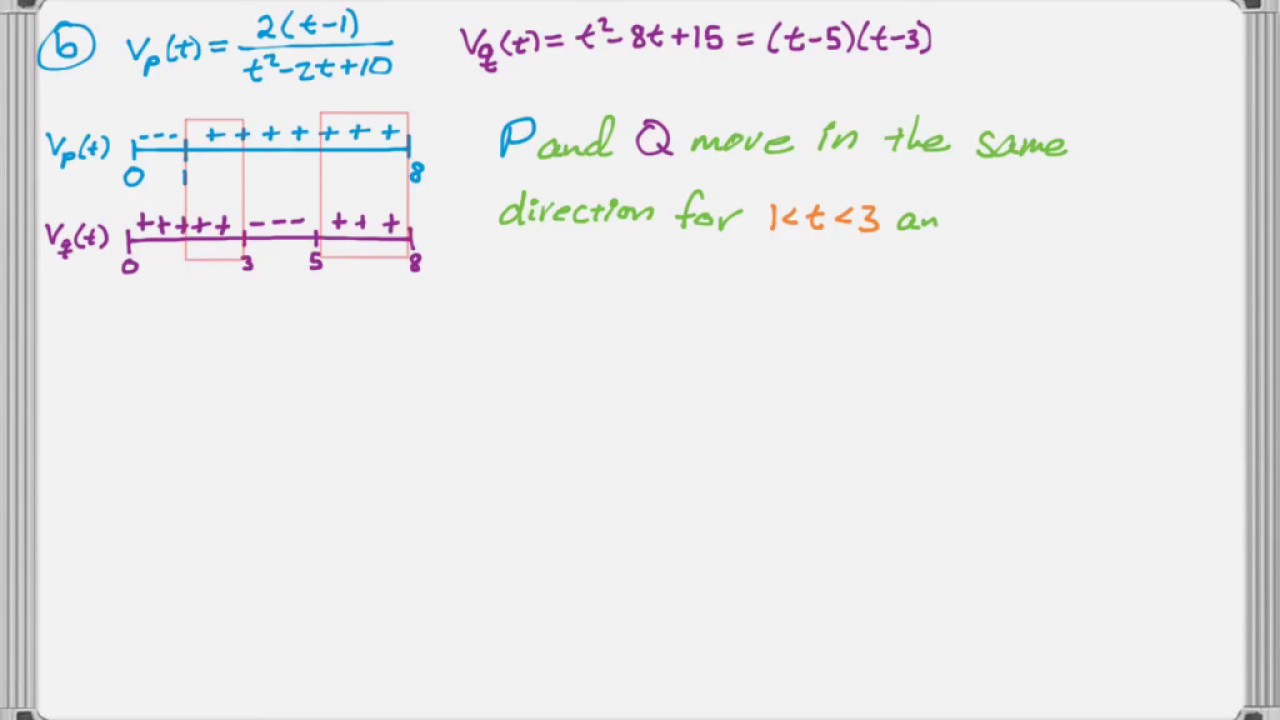 b v_p(t) = 2(t-1) / t²-2t+10 v_q(t) = t²-8t+15 = (t-5)(t-3)
v_p(t) - - - + + + + + + +
0 1 8
v_q(t) + + + + + - - - + + +
0 3 5 8
P and Q move in the same
direction for 1<t<3 an